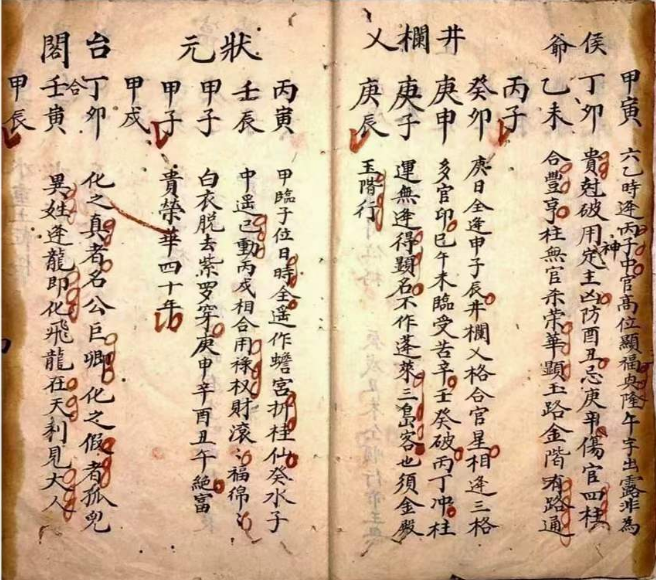 侯爺
甲寅 六乙時逢丙子中官高位顯福奥隆午字出露非為
丁卯 貴尅破用定主凶防酉丑忌庚辛傷官四柱
神
乙未 合豐亨柱無官未荣華顯玉路金階有路通
丙子
井欄乂
癸卯 庚日全逢申子辰井欄乂格合官星相逢三格
庚申 多官印巳午未臨受苦辛壬癸破丙丁冲柱
庚子 運無逢得顕名不作蓬萊三島客也須金殿
庚辰 玉階行
狀元
丙寅 甲臨子位日時全遥作蟾宮折桂仙癸水子
壬辰 中遥已動丙戍相合用祿权財滚滚福绵绵
甲子 白衣脱去紫罗穿庚申辛酉丑午絕富
甲子 貴榮華四十年
甲戍
台閣
丁卯 化之真者名公巨卿化之假者孤兒
合
壬寅 異姓逢龍即化飛龍在天利見大人
甲辰